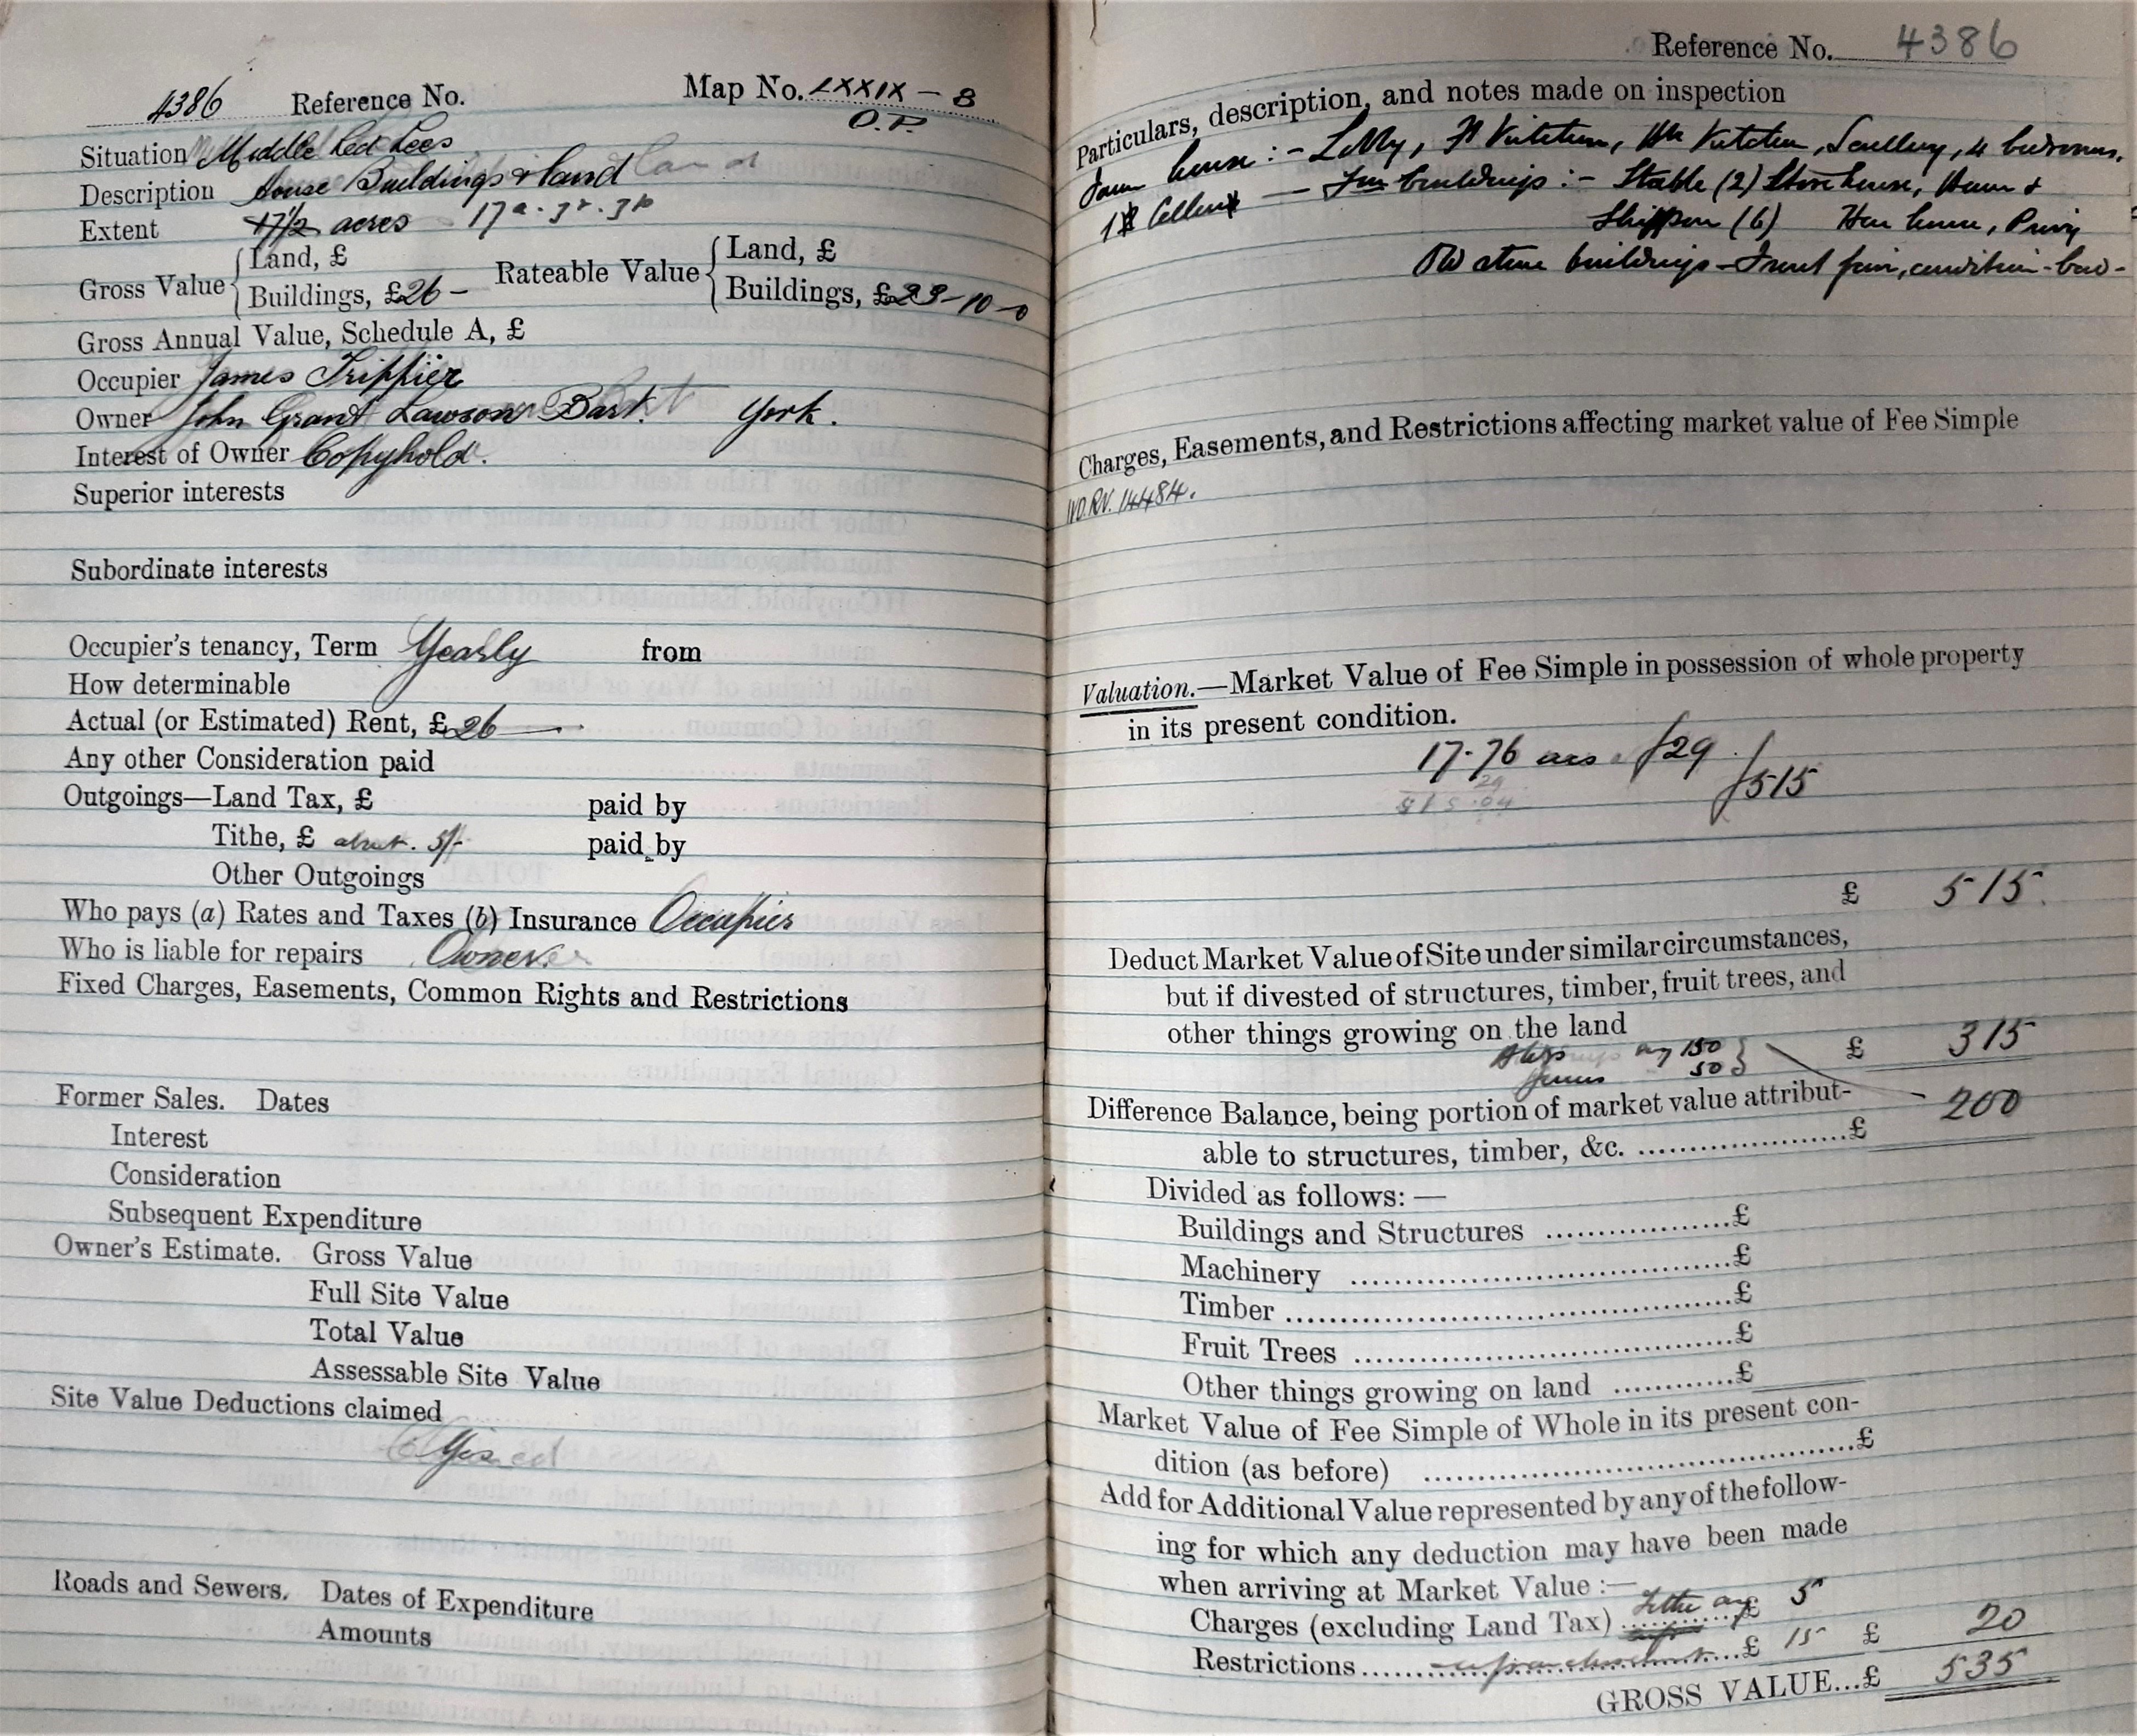 4386 Reference No. Map No. LXXIX - 8
O.P.
Situation Middle Red Lees
Description House Buildings & land
Extent 17½ acres 17a. 3r. 3p
Gross Value { Land, £ Rateable Value { Land, £
Buildings, £26 - Buildings, £23-10-0
Gross Annual Value, Schedule A, £
Occupier James Trippier
Owner John Grant Lawson Bart. York.
Interest of Owner Copyhold.
Superior interests
Subordinate interests
Occupier's tenancy, Term Yearly from
How determinable
Actual (or Estimated) Rent, £26 —
Any other Consideration paid
Outgoings—Land Tax, £ paid by
Tithe, £ about. 5/- paid by
Other Outgoings
Who pays (a) Rates and Taxes (b) Insurance Occupier
Who is liable for repairs Owner.
Fixed Charges, Easements, Common Rights and Restrictions
Former Sales. Dates
Interest
Consideration
Subsequent Expenditure
Owner's Estimate. Gross Value
Full Site Value
Total Value
Assessable Site Value
Site Value Deductions claimed
Roads and Sewers. Dates of Expenditure
Amounts
Reference No. 4386
Particulars, description, and notes made on inspection
Farm house :- Lobby, Ft Kitchen, Bk Kitchen, Scullery, 4 bedrooms,
1 Cellar — Fm buildings :- Stable (2) Storehouse, Barn &
Shippon (6) Hen house, Privy
Old stone buildings - Front fair, condition - bad -
Charges, Easements, and Restrictions affecting market value of Fee Simple
WO.RV. 14484.
Valuation.—Market Value of Fee Simple in possession of whole property
in its present condition.
17.76 acs £29
29
£515
515.04
£ 515.
Deduct Market Value of Site under similar circumstances,
but if divested of structures, timber, fruit trees, and
other things growing on the land
Bldgs say 150 } £ 315
50
Difference Balance, being portion of market value attribut- 200
able to structures, timber, &c. ....................£
Divided as follows: —
Buildings and Structures ..................£
Machinery ....................................£
Timber ..........................................£
Fruit Trees ....................................£
Other things growing on land ............£
Market Value of Fee Simple of Whole in its present con-
dition (as before) ........................................£
Add for Additional Value represented by any of the follow-
ing for which any deduction may have been made
when arriving at Market Value :—
Charges (excluding Land Tax) Tithe say £ 5
Restrictions......enfranchisement......£ 15 £ 20
GROSS VALUE...£ 535